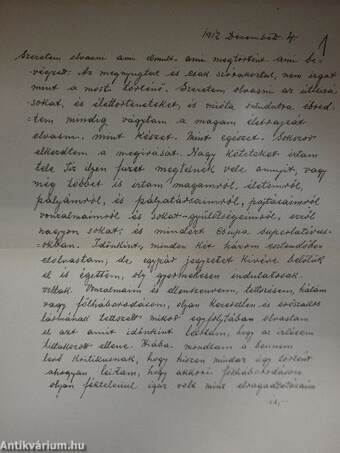 1912 December 4.
1
Szeretem olvasni ami elmult - ami megtörtént ami be-
végzett. Az megnyugtat és csak szórakoztat, nem izgat
mint a most történő. Szeretem olvasni az utleirá
sokat, és élettörténeteket, és mióta öntudatra ébred-
tem mindig vágytam a magam életrajzát
olvasni - mint készet. Mint egészet. Sokszor
elkezdtem a megirását. Nagy köteteket irtam
tele. Tiz ilyen füzet megtelnék vele annyit, vagy
még többet is irtam magamról, életemről,
pályámról, és pályatársaimról, pajtásaimról
vonzalmaimról és sokat - gyülölségeimről, erről
nagyon sokat, és mindezt csupa superlativus-
okban. Időnként, minden két három esztendőben
elolvastam, de egypár jegyzetet kivéve belőlük
el is égettem, oly gyermekesen indulatosak
voltak. Vonzalmaim és ellenszenveim, tetszésem, hálám
vagy fölháborodásom, olyan kezesetlen és erőszakos
lármának tetszett mikor egyfolytában olvastam
el azt amit időnként leirtam, hogy az izlésem
tiltakozott ellene. Hiába mondtam a bennem
levő kritikusnak, hogy hiszen mindaz ugy történt
ahogyan leirtam, hogy akkori fölháborodásom
olyan féktelenül igaz volt mint elragadtatásaim
antikvárium.hu